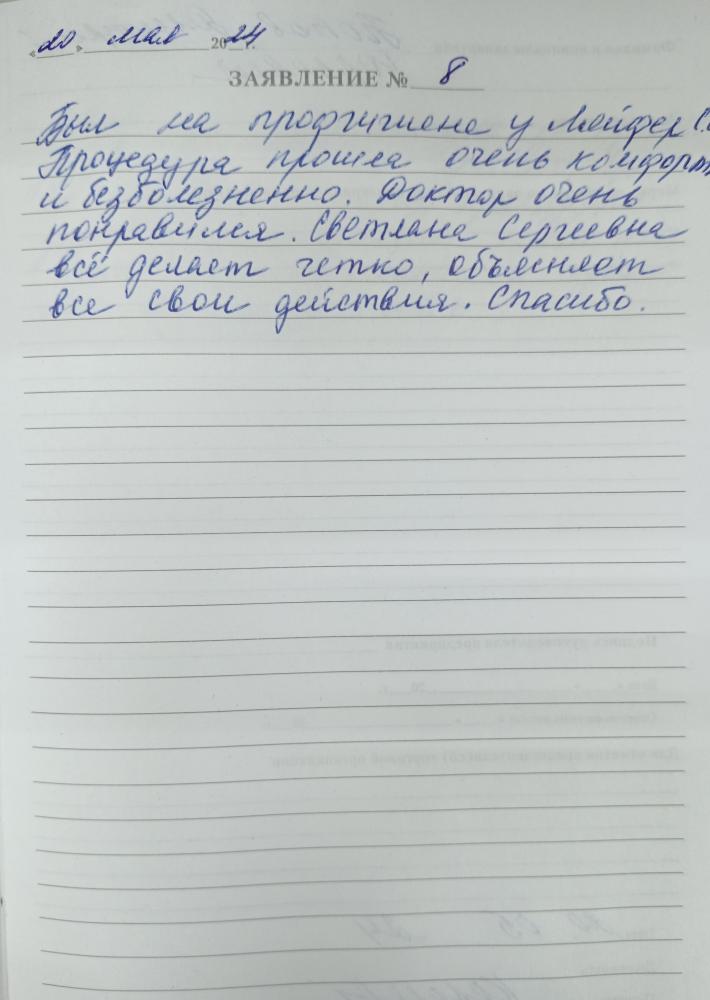 « 20 » мая 2024 г.
ЗАЯВЛЕНИЕ № 8
Был на профгигиене у Мейфер С.
Процедура прошла очень комфорт
и безболезненно. Доктор очень
понравился. Светлана Сергеевна
всё делает четко, объясняет
все свои действия. Спасибо.